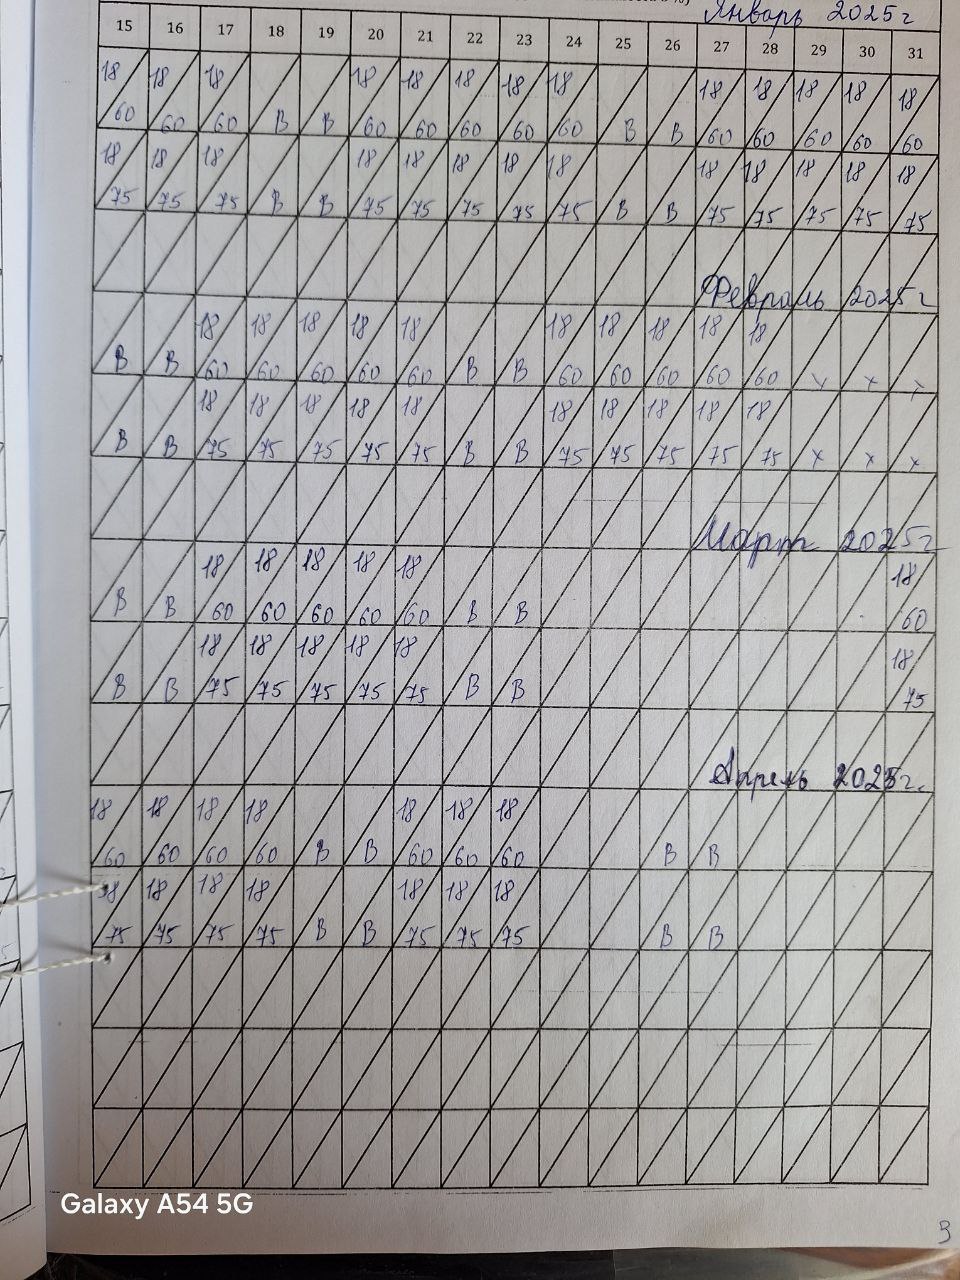 Январь 2025г
15 16 17 18 19 20 21 22 23 24 25 26 27 28 29 30 31
18 18 18 18 18 18 18 18 18 18 18 18 18
60 60 60 В В 60 60 60 60 60 В В 60 60 60 60 60
18 18 18 18 18 18 18 18 18 18 18 18 18
75 75 75 В В 75 75 75 75 75 В В 75 75 75 75 75
Февраль 2025г
18 18 18 18 18 18 18 18 18 18
В В 60 60 60 60 60 В В 60 60 60 60 60 х х х
18 18 18 18 18 18 18 18 18 18
В В 75 75 75 75 75 В В 75 75 75 75 75 х х х
Март 2025г
18 18 18 18 18 18
В В 60 60 60 60 60 В В 60
18 18 18 18 18 18
В В 75 75 75 75 75 В В 75
Апрель 2025г.
18 18 18 18 18 18 18
60 60 60 60 В В 60 60 60 В В
18 18 18 18 18 18 18
75 75 75 75 В В 75 75 75 В В
Galaxy A54 5G